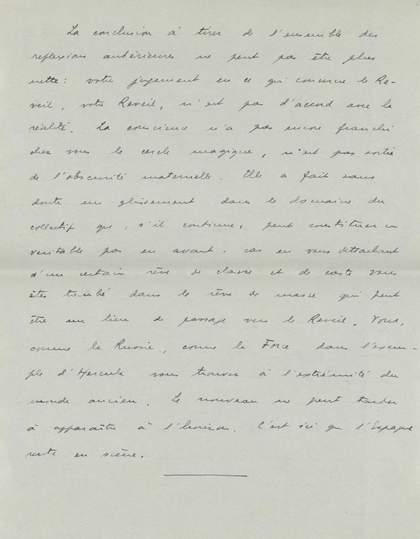 La conclusion à tirer de l'ensemble des
reflexions antérieures ne peut pas être plus
nette: votre jugement en ce qui concerne le Re-
veil, votre Reveil, n'est pas d'accord avec la
réalité. La conscience n'a pas encore franchi
chez vous le cercle magique, n'est pas sortie
de l'obscurité maternelle. Elle a fait sans
doute un glissement dans le domaine du
collectif qui, s'il continue, peut constituer un
veritable pas en avant. Car en vous détachant
d'un certain rêve de classe et de caste vous
êtes tombé dans le rêve de masse qui peut
être un lieu de passage vers le Reveil. Vous,
comme la Russie, comme la Force dans l'exem-
ple d'Hercule vous trouvez à l'extrémité du
monde ancien. Le nouveau ne peut tarder
à apparaître à l'horizon. C'est ici que l'Espagne
entre en scène.